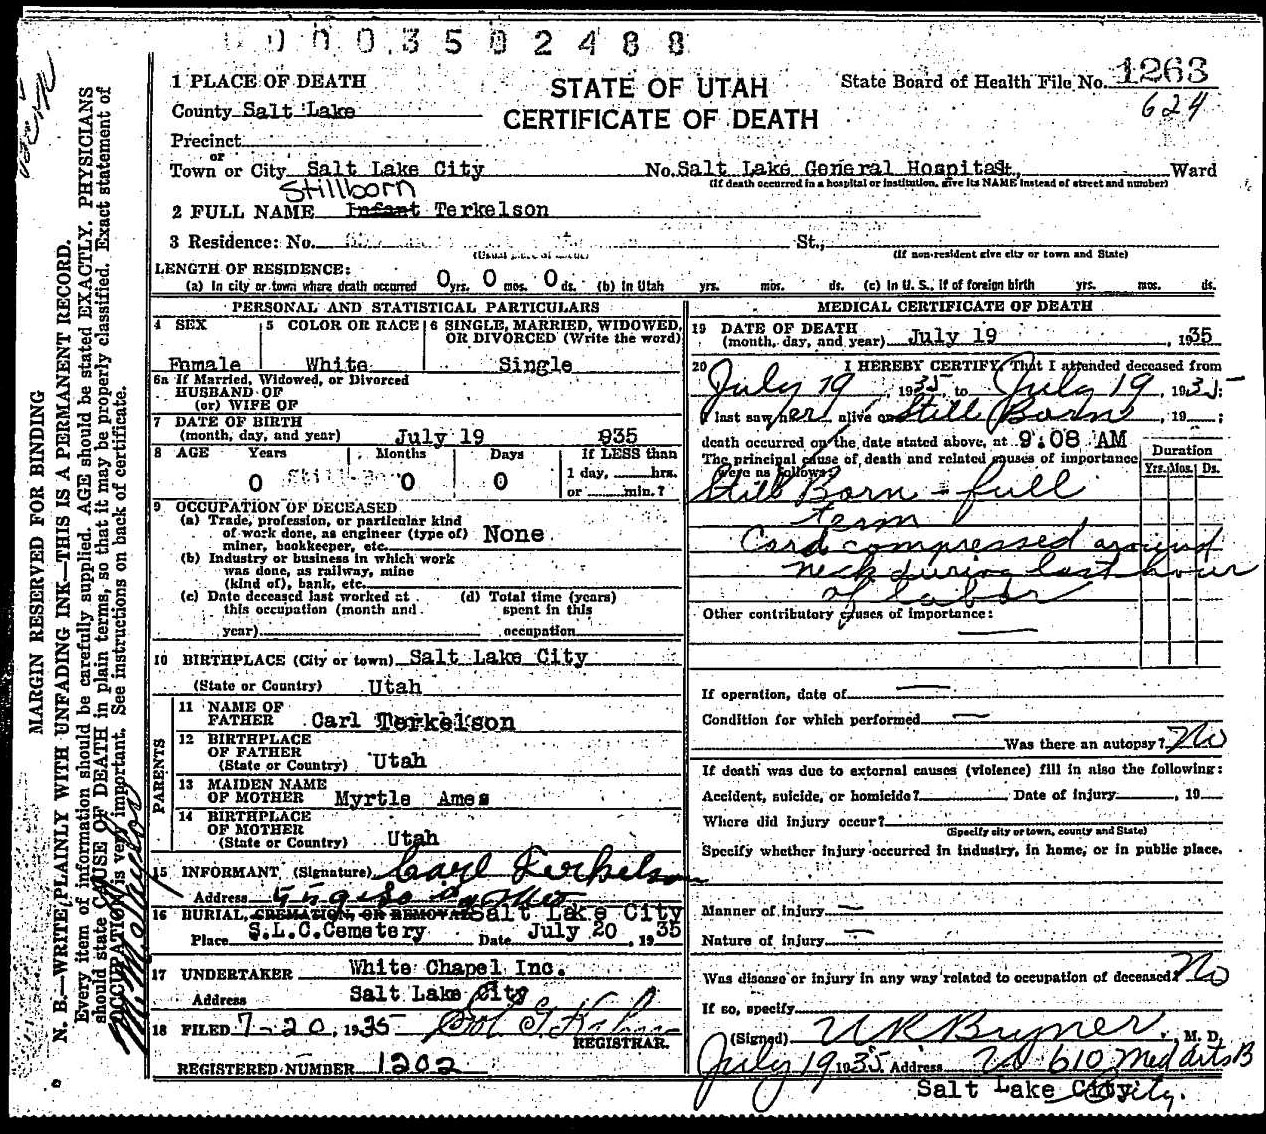 0003502488
1 PLACE OF DEATH
STATE OF UTAH
CERTIFICATE OF DEATH
State Board of Health File No. 1263
624
County Salt Lake
Precinct
or
Town or City Salt Lake City No. Salt Lake General Hospital St., Ward
(If death occurred in a hospital or institution, give its NAME instead of street and number)
Stillborn
2 FULL NAME Infant Terkelson
3 Residence: No. St.,
(Usual place of abode) (If non-resident give city or town and State)
LENGTH OF RESIDENCE:
(a) In city or town where death occurred 0 yrs. 0 mos. 0 ds. (b) In Utah yrs. mos. ds. (c) In U. S., if of foreign birth yrs. mos. ds.
PERSONAL AND STATISTICAL PARTICULARS
4 SEX Female
5 COLOR OR RACE White
6 SINGLE, MARRIED, WIDOWED, OR DIVORCED (Write the word) Single
6a If Married, Widowed, or Divorced
HUSBAND OF
(or) WIFE OF
7 DATE OF BIRTH
(month, day, and year) July 19 935
8 AGE Years Months Days If LESS than
0 Still 0 0 1 day, hrs.
or min.?
9 OCCUPATION OF DECEASED
(a) Trade, profession, or particular kind
of work done, as engineer (type of)
miner, bookkeeper, etc. None
(b) Industry or business in which work
was done, as railway, mine
(kind of), bank, etc.
(c) Date deceased last worked at
this occupation (month and
year)
(d) Total time (years)
spent in this
occupation
10 BIRTHPLACE (City or town) Salt Lake City
(State or Country) Utah
PARENTS
11 NAME OF
FATHER Carl Terkelson
12 BIRTHPLACE
OF FATHER
(State or Country) Utah
13 MAIDEN NAME
OF MOTHER Myrtle Ames
14 BIRTHPLACE
OF MOTHER
(State or Country) Utah
15 INFORMANT (Signature) Carl Terkelson
Address
16 BURIAL, CREMATION, OR REMOVAL Salt Lake City
Place S.L.C.Cemetery Date July 20, 1935
17 UNDERTAKER White Chapel Inc.
Address Salt Lake City
18 FILED 7-20, 1935
REGISTRAR.
REGISTERED NUMBER 1202
MEDICAL CERTIFICATE OF DEATH
19 DATE OF DEATH
(month, day, and year) July 19, 1935
20 I HEREBY CERTIFY, That I attended deceased from
July 19, 1935, to July 19, 1935;
I last saw her alive on Still Born, 19 ;
death occurred on the date stated above, at 9:08 AM
The principal cause of death and related causes of importance
were as follows: Duration
Yrs. Mos. Ds.
Still Born - full
term
Cord compressed around
neck during last hour
of labor
Other contributory causes of importance:
If operation, date of
Condition for which performed
Was there an autopsy? No
If death was due to external causes (violence) fill in also the following:
Accident, suicide, or homicide? Date of injury , 19
Where did injury occur?
(Specify city or town, county and State)
Specify whether injury occurred in industry, in home, or in public place.
Manner of injury
Nature of injury
Was disease or injury in any way related to occupation of deceased? No
If so, specify
(Signed) , M. D.
July 19 1935 Address 610 Med Arts B
Salt Lake City City.
MARGIN RESERVED FOR BINDING
N. B.—WRITE PLAINLY WITH UNFADING INK—THIS IS A PERMANENT RECORD.
Every item of information should be carefully supplied. AGE should be stated EXACTLY. PHYSICIANS
should state CAUSE OF DEATH in plain terms, so that it may be properly classified. Exact statement of
OCCUPATION is very important. See instructions on back of certificate.